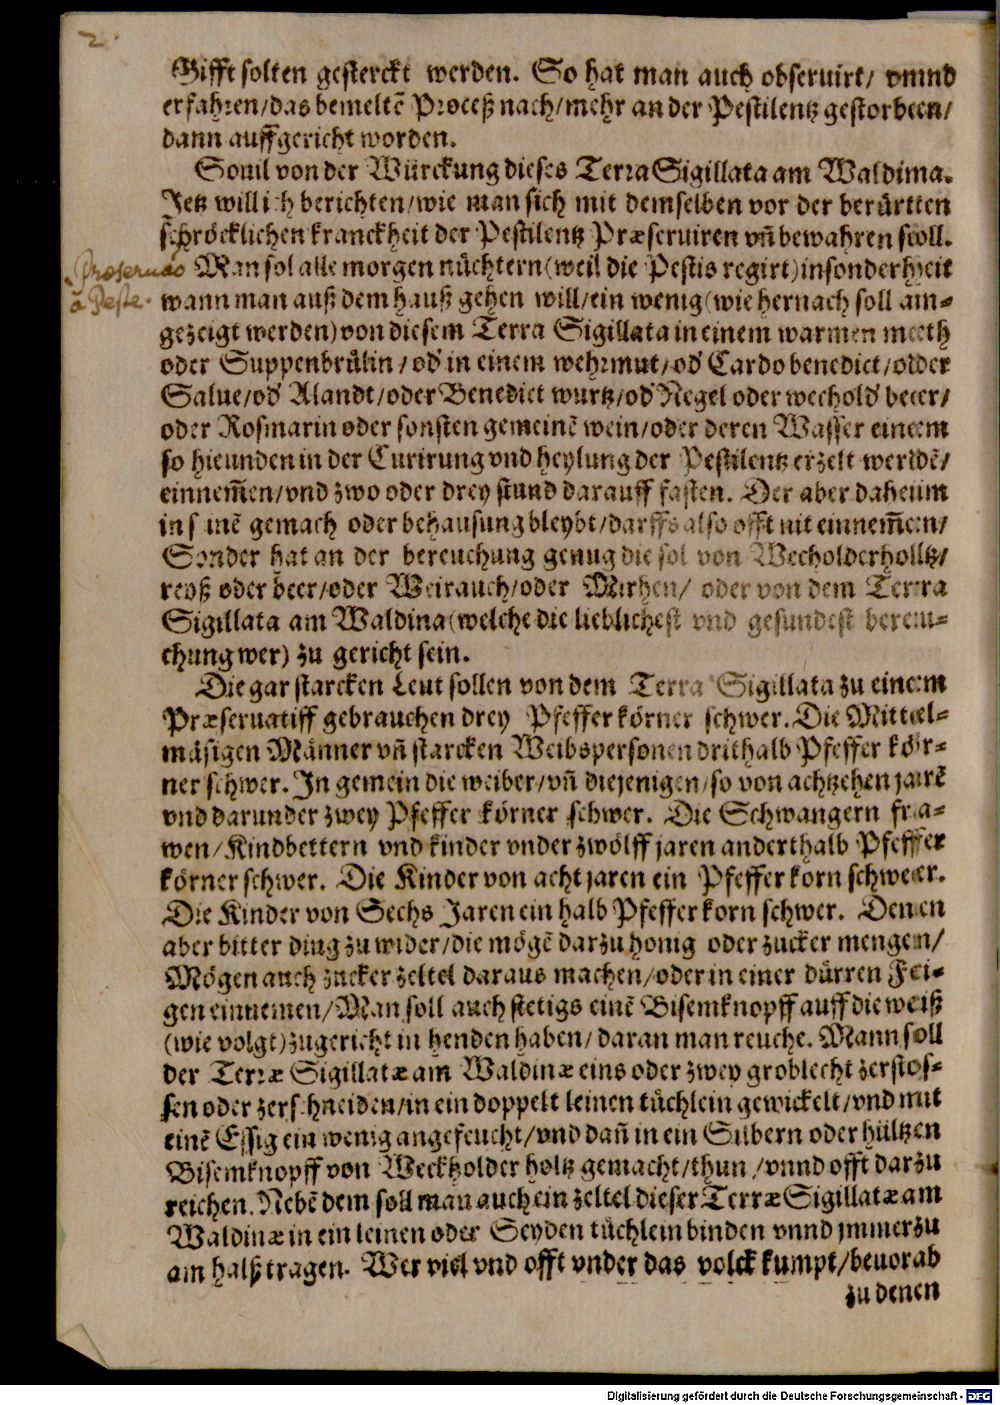 2.
Gifft solten gesterckt werden. So hat man auch obseruirt/ vnnd
erfahren/das bemeltẽ Proceß nach/mehr an der Pestilentz gestorbeen/
dann auffgericht worden.
Souil von der Würckung dieses Terra Sigillata am Waldima.
Jetz will ich berichten/wie man sich mit demselben vor der berürtten
schröcklichen kranckheit der Pestilentz Præseruiren vñ bewahren swoll.
Præseruatio
à Peste.
Man sol alle morgen nüchtern(weil die Pestis regirt)insonderheit
wann man auß dem hauß gehen will/ein wenig(wie hernach soll ain-
gezeigt werden)von diesem Terra Sigillata in einem warmen meeth
oder Suppenbrülin/od' in einem wehrmut/od' Cardobenedict/older
Salue/od' Alandt/oder Benedict wurtz/od' Negel oder wechold' beeer/
oder Rosmarin oder sonsten gemeinẽ wein/oder deren Wasser eineem
so hieunden in der Curirung vnd heylung der Pestilentz erzelt werldẽ/
einnem̃en/vnd zwo oder drey stund darauff fasten. Der aber daheiim
in s inẽ gemach oder behausung bleybt/darffs also offt nit einnem̃em/
Sonder hat an der bereuchung genug die sol von Wecholderholltz/
reyß oder beer/oder Weirauch/oder Mirhen/ oder von dem Terrra
Sigillata am Waldina(welche die lieblichest vnd gesundest bereiu-
chung wer) zu gericht sein.
Die gar starcken Leut sollen von dem Terra Sigillata zu einem
Præseruatiff gebrauchen drey Pfeffer körner schwer. Die Mittæl-
mäsigen Männer vñ starcken Weibspersonen drithalb Pfeffer kör-
ner schwer. In gemein die weiber/vñ diejenigen/so von achtzehen jarẽ
vnd darunder zwey Pfeffer körner schwer. Die Schwangern fra-
wen/Kindbettern vnd kinder vnder zwölff jaren anderthalb Pfeffer
körner schwer. Die Kinder von acht jaren ein Pfeffer korn schweer.
Die Kinder von Sechs Jaren ein halb Pfeffer korn schwer. Denen
aber bitter ding zu wider/die mögẽ darzu honig oder zucker mengen/
Mögen auch zucker zeltel daraus machen/oder in einer dürren Fei-
gen einnemen/Man soll auch stetigs einẽ Bisemknopff auff die weiß
(wie volgt)zugericht in henden haben/daran man reuche. Mann soll
der Terræ Sigillatæ am Waldinæ eins oder zwey groblecht zerstos-
sen oder zerschneiden/in ein doppelt leinen tüchlein gewickelt/vnd mit
einẽ Essig ein wenig angefeucht/vnd dañ in ein Silbern oder hültzen
Bisemknopff von Wecktzolder holtz gemacht/thun/vnnd offt darzu
reichen. Nebẽ dem soll man auch ein zeltel dieser Terræ Sigillatæ am
Waldinæ in ein leinen oder Seyden tüchlein binden vnnd jmmerzu
am halß tragen. Wer viel vnd offt vnder das volck kumpt/beuorab
zu denen
Digitalisierung gefördert durch die Deutsche Forschungsgemeinschaft - DFG